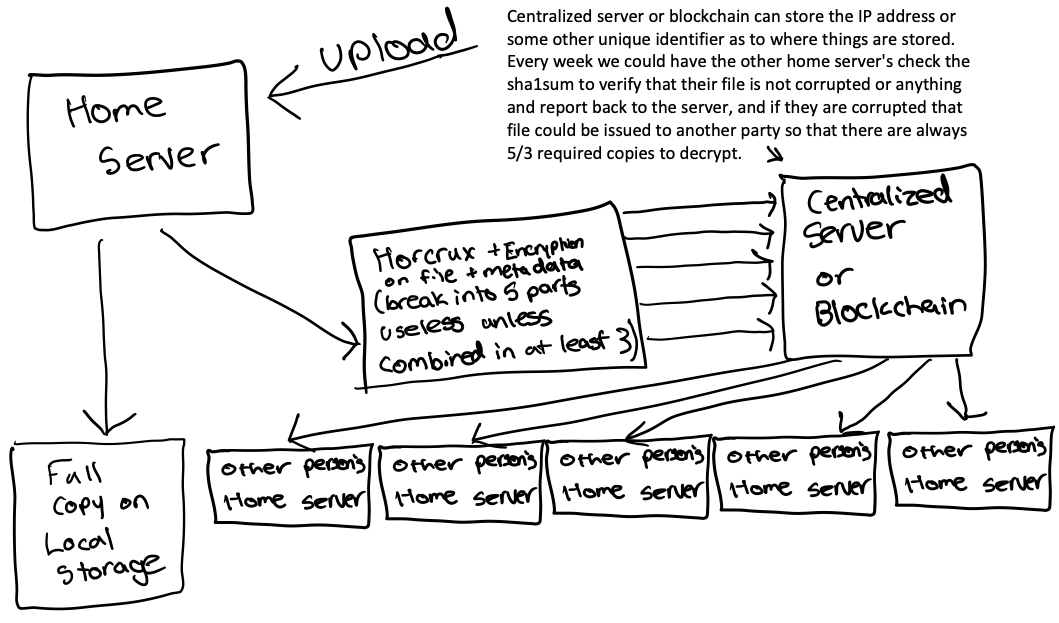 UPLOAD
Centralized server or blockchain can store the IP address or
some other unique identifier as to where things are stored.
Every week we could have the other home server's check the
sha1sum to verify that their file is not corrupted or anything
and report back to the server, and if they are corrupted that
file could be issued to another party so that there are always
5/3 required copies to decrypt.
Home
Server
Horcrux + Encryption
on file + metadata
(break into 5 parts
useless unless
combined in at least 3)
Centralized
Server
or
Blockchain
Full
Copy on
Local
Storage
Other person's
Home server
Other person's
Home server
Other person's
Home server
Other person's
Home server
Other person's
Home server